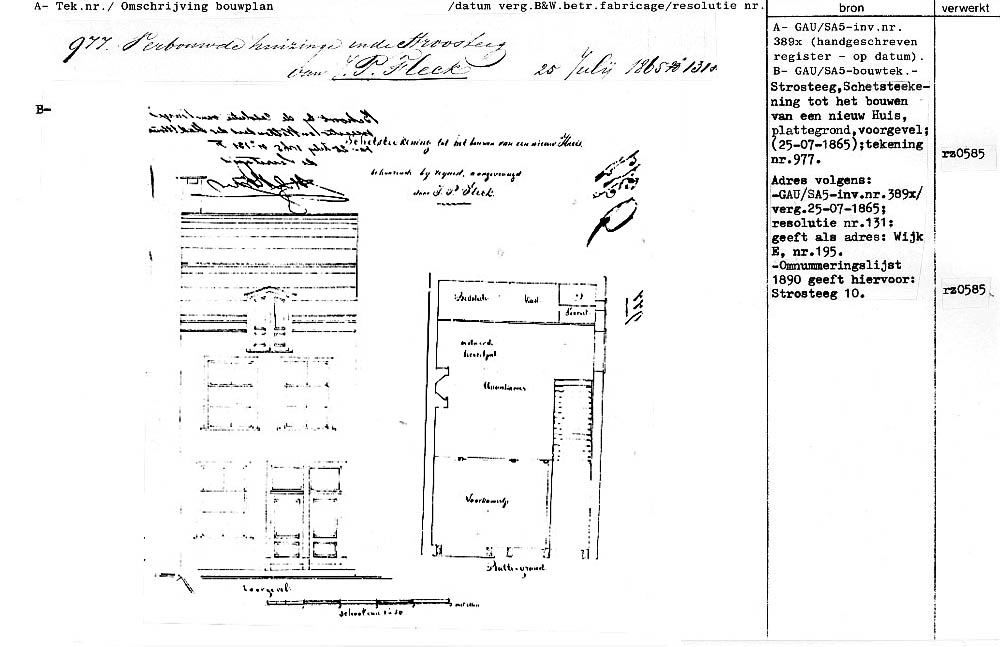 A- Tek.nr./ Omschrijving bouwplan /datum verg.B&W.betr.fabricage/resolutie nr.
977. Verbouwde huizinge inde Stroosteeg
van J. P. Fleck 25 Julij 1865 No 131.
B-
Schetsteekening tot het bouwen van een nieuw Huis.
behoorende bij request, aangevraagd
door J. P. Fleck.
Bedstede Kast
Woonkamer
Voorkamertje
Platte-grond
Voorgevel.
Schaal van 1 à 50
bron
A- GAU/SA5-inv.nr.
389x (handgeschreven
register - op datum).
B- GAU/SA5-bouwtek.-
Strosteeg,Schetsteeke-
ning tot het bouwen
van een nieuw Huis,
plattegrond,voorgevel;
(25-07-1865);tekening
nr.977.
Adres volgens:
-GAU/SA5-inv.nr.389x/
verg.25-07-1865;
resolutie nr.131:
geeft als adres: Wijk
E, nr.195.
-Omnummeringslijst
1890 geeft hiervoor:
Strosteeg 10.
verwerkt
rz0585
rz0585